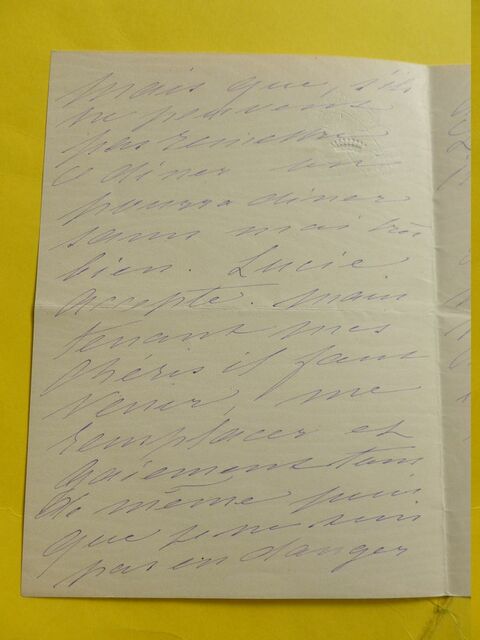 mais que, s'ils
ne peuvent
pas remettre
ce diner on
pourra diner
sans moi très
bien. Lucie
accepte. Main
tenant mes
chéris il faut
venir, me
remplacer et
gaiement tout
de même puis
que je ne suis
pas en danger